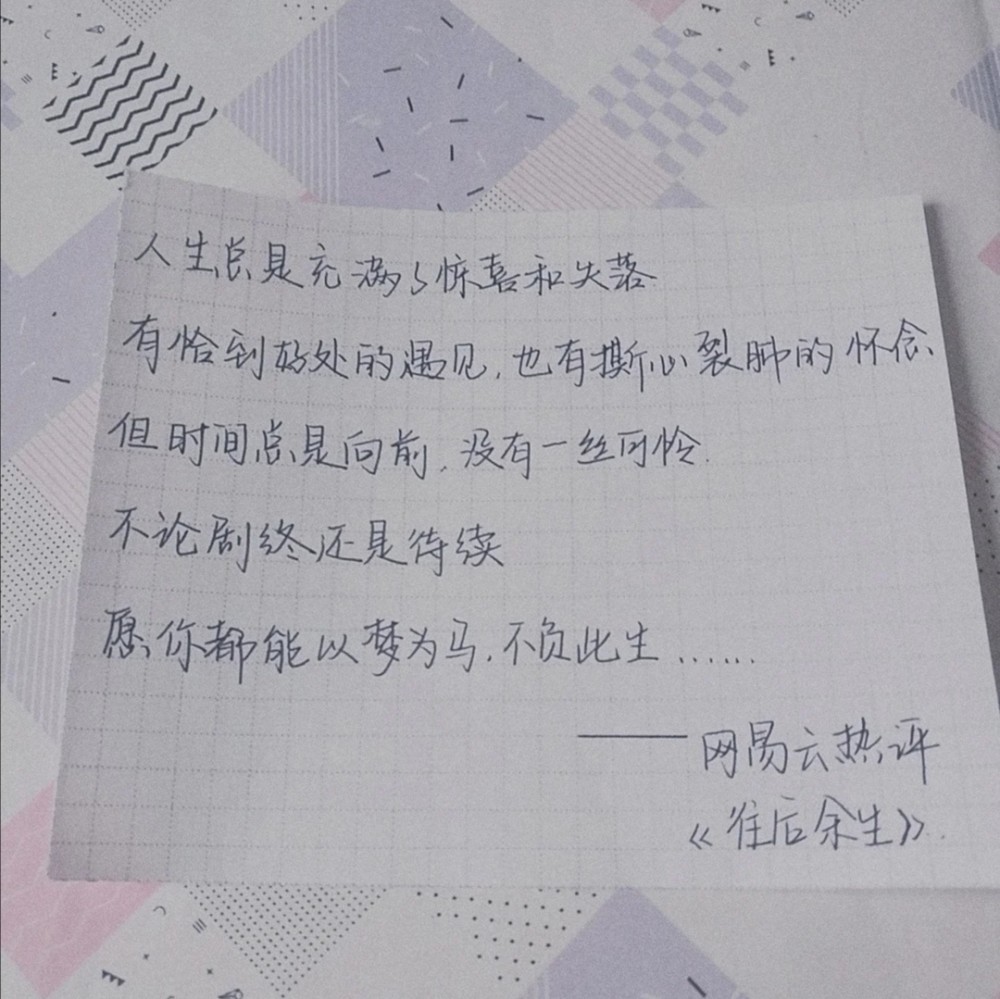 人生总是充满了惊喜和失落
有恰到好处的遇见，也有撕心裂肺的怀念、
但时间总是向前，没有一丝可怜.
不论剧终还是待续
愿你都能以梦为马，不负此生……
——网易云热评
《往后余生》.